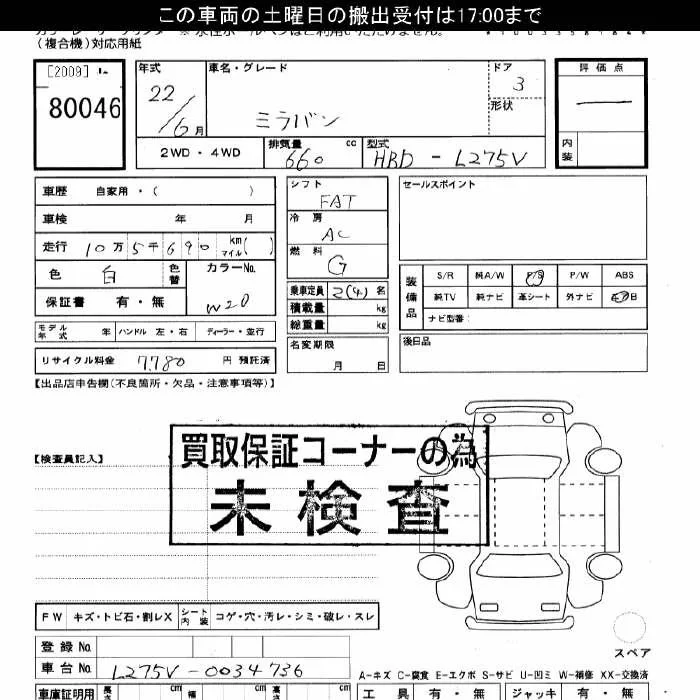 この車両の土曜日の搬出受付は17:00まで
(複合機)対応用紙
[2009]
80046
年式
22/6月
車名・グレード
ミラバン
ドア
3
形状
評価点
内装
2WD・4WD
排気量 cc
660
型式
HBD-L275V
車歴 自家用・( )
車検 年 月
走行 10万5千690 km マイル( )
色 白 色替
カラーNo.
W20
保証書 有・無
モデル年式 年 ハンドル 左・右 ディーラー・並行
リサイクル料金 7780 円 預託済
シフト
FAT
冷房
AC
燃料
G
乗車定員 2(4)名
積載量 kg
総重量 kg
名変期限
月 日
セールスポイント
装備品
S/R 純A/W P/S P/W ABS
純TV 純ナビ 革シート 外ナビ
ナビ型番:
後日品
【出品店申告欄(不良箇所・欠品・注意事項等)】
【検査員記入】
買取保証コーナーの為
未検査
FW キズ・トビ石・割レX シート内装 コゲ・穴・汚レ・シミ・破レ・スレ
スペア
登録No.
車台No. L275V-0034736
A-キズ C-腐食 E-エクボ S-サビ U-凹ミ W-補修 XX-交換済
車庫証明用 長さ cm 幅 cm 高さ cm
工具 有・無 ジャッキ 有・無